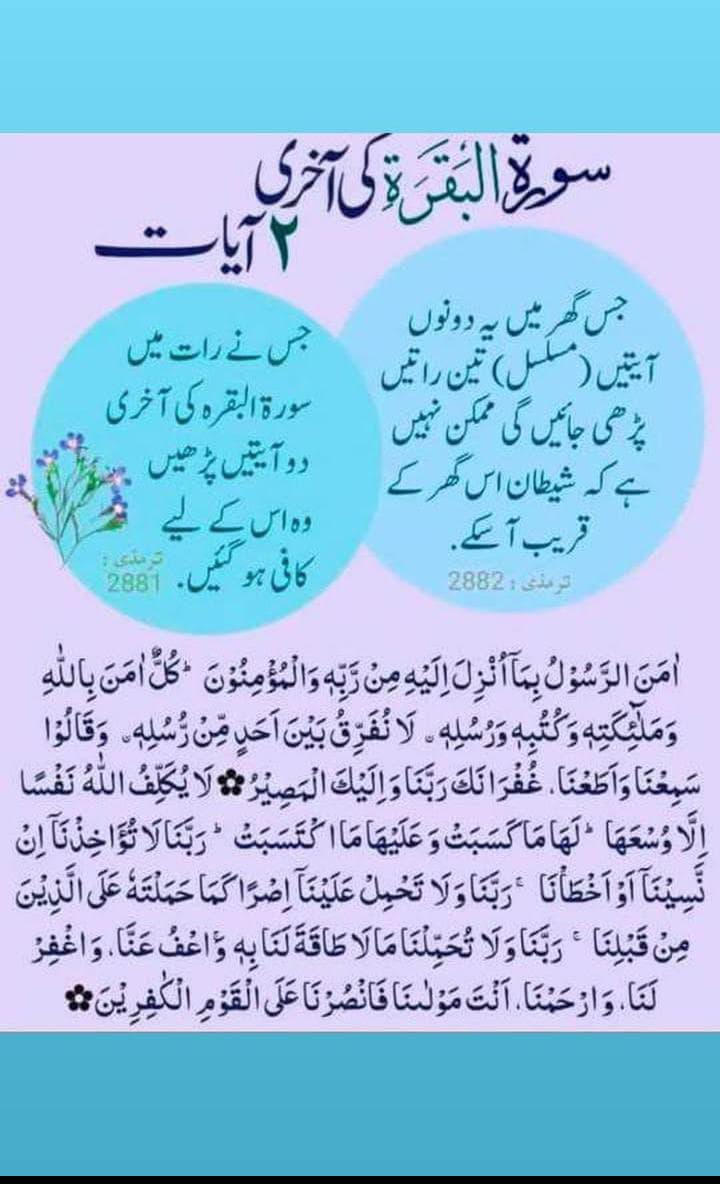 سورۃ البَقَرَةِ کی آخری
۲ آیات
جس گھر میں یہ دونوں
آیتیں (مسلسل) تین راتیں
پڑھی جائیں گی ممکن نہیں
ہے کہ شیطان اس گھر کے
قریب آ سکے.
ترمذی : 2882
جس نے رات میں
سورۃ البقرہ کی آخری
دو آیتیں پڑھیں
وہ اس کے لیے
کافی ہو گئیں.
ترمذی :
2881
اٰمَنَ الرَّسُوْلُ بِمَاۤ اُنْزِلَ اِلَیْهِ مِنْ رَّبِّهٖ وَالْمُؤْمِنُوْنَ ؕ كُلٌّ اٰمَنَ بِاللّٰهِ
وَمَلٰٓئِكَتِهٖ وَكُتُبِهٖ وَرُسُلِهٖ ۫ لَا نُفَرِّقُ بَیْنَ اَحَدٍ مِّنْ رُّسُلِهٖ ۫ وَقَالُوْا
سَمِعْنَا وَاَطَعْنَا، غُفْرَانَكَ رَبَّنَا وَاِلَیْكَ الْمَصِیْرُ ✿ لَا یُكَلِّفُ اللّٰهُ نَفْسًا
اِلَّا وُسْعَهَا ؕ لَهَا مَا كَسَبَتْ وَعَلَیْهَا مَا اكْتَسَبَتْ ؕ رَبَّنَا لَا تُؤَاخِذْنَاۤ اِنْ
نَّسِیْنَاۤ اَوْ اَخْطَاْنَا ۚ رَبَّنَا وَلَا تَحْمِلْ عَلَیْنَاۤ اِصْرًا كَمَا حَمَلْتَهٗ عَلَی الَّذِیْنَ
مِنْ قَبْلِنَا ۚ رَبَّنَا وَلَا تُحَمِّلْنَا مَا لَا طَاقَةَ لَنَا بِهٖ وَاعْفُ عَنَّا، وَاغْفِرْ
لَنَا، وَارْحَمْنَا، اَنْتَ مَوْلٰىنَا فَانْصُرْنَا عَلَی الْقَوْمِ الْكٰفِرِیْنَ ✿